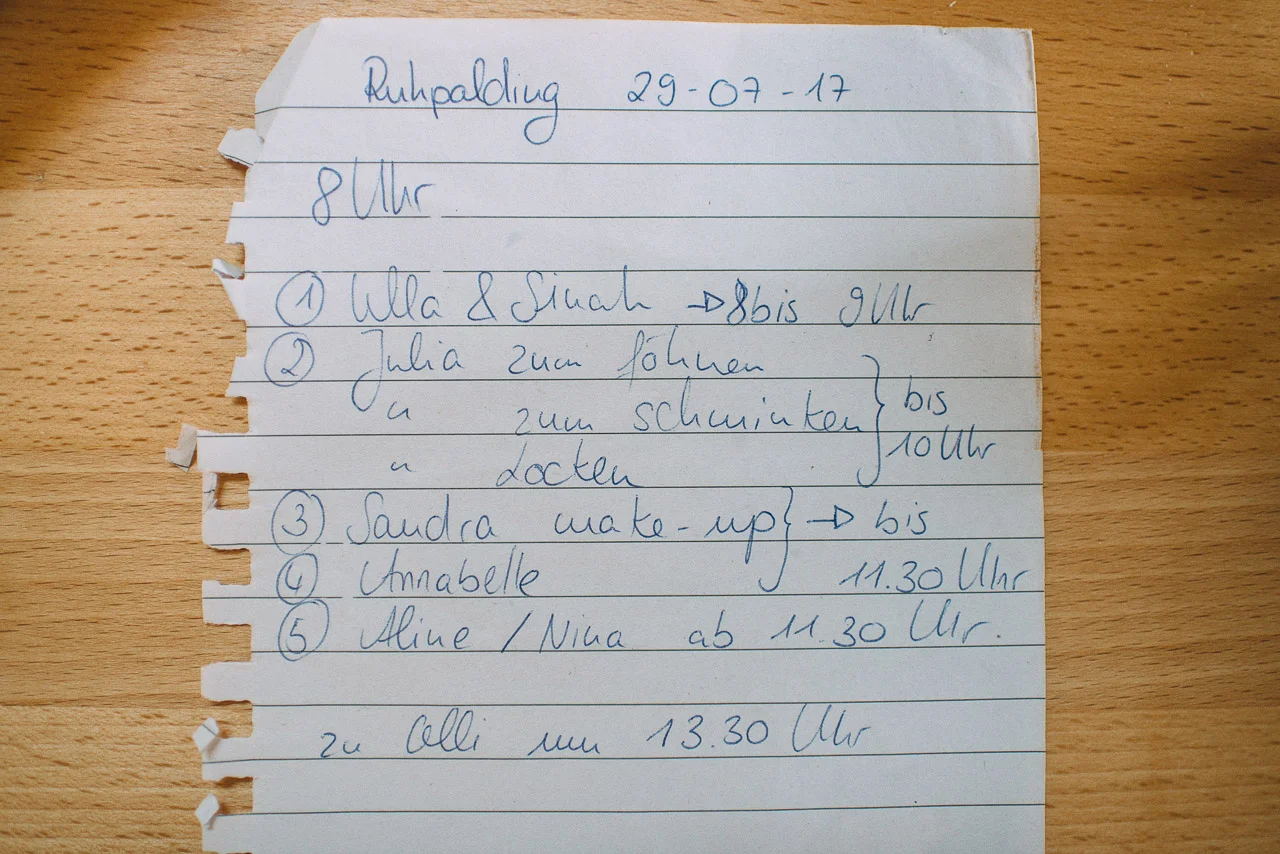 Ruhpalding 29-07-17
8 Uhr
① Ulla & Sinah → 8 bis 9 Uhr
② Julia zum föhnen
" zum schminken } bis
" Locken 10 Uhr
③ Sandra make-up } → bis
④ Annabelle 11.30 Uhr
⑤ Aline / Nina ab 11.30 Uhr.
zu Olli um 13.30 Uhr